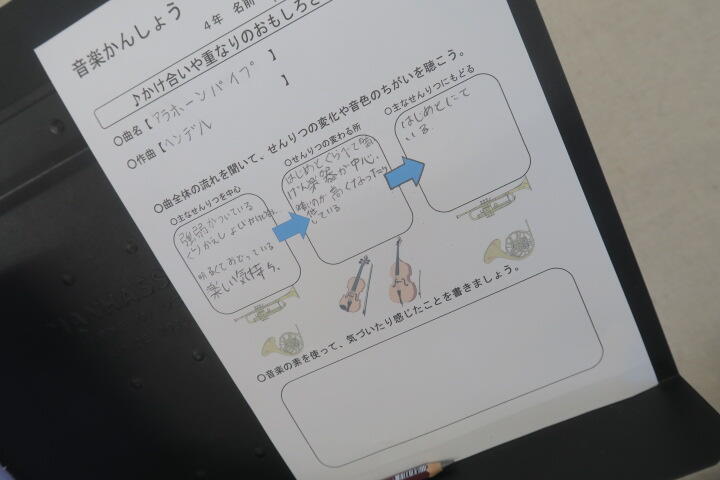 音楽かんしょう
4年 名前
♪かけ合いや重なりのおもしろさ
○曲名【アラホーンパイプ】
○作曲【ヘンデル】
○曲全体の流れを聞いて、せんりつの変化や音色のちがいを聴こう。
○主なせんりつを中心
強弱がついている
明るくておどっている
楽しい気持ち。
○せんりつの変わる所
はじめとくらべて
楽器が中心。
高くなったり
している
○主なせんりつにもどる
はじめとにて
いる。
○音楽の素を使って、気づいたり感じたことを書きましょう。